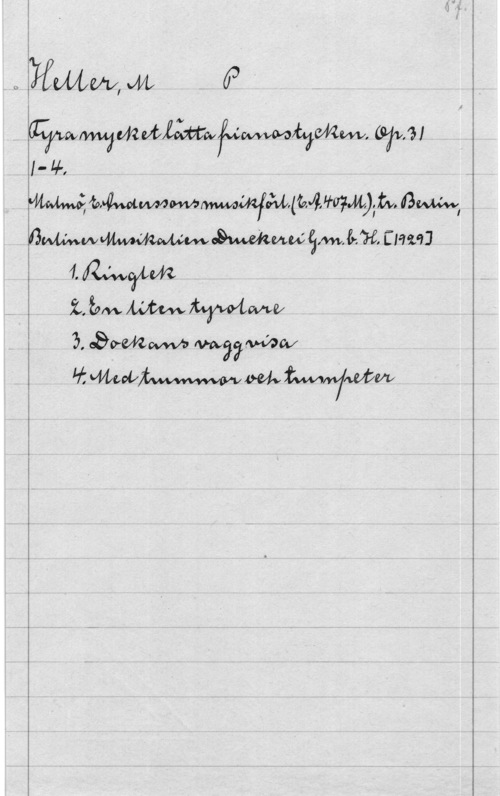 Heller, M P
Fyra mycket lätta pianostycken. Op. 31
1-4.
Malmö, E. Anderssons musikförl. (E.A. 407 M.); tr. Berlin,
Berliner Musikalien Druckerei G.m.b.H. [1929]
1. Ringlek
2. En liten tyrolare
3. Dockans vaggvisa
4. Med trummor och trumpeter